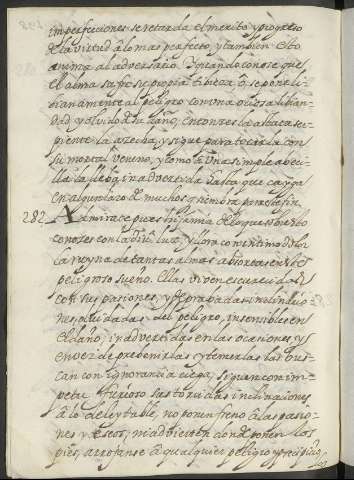 imperfecciones se retarda el merito y progreso
de la virtud a lo mas perfecto, y tambien esto
anima al adversario. Y quando conoce que
el alma sufre su propria tibieza, o se pone li-
bianamente al peligro con una ociosa liban-
dad y olvido de su daño, entonces la astuta ser-
piente la azecha, y sigue para tocarla con
su mortal veneno, y como a una simple aveci-
lla la lleba inadvertida hasta que cayga
en algun lazo de muchos q siembra para este fin.
282 Admirate pues hija mia de lo que sobre esto
conoces con la divi. luz, y llora con intimo dolor
la ruyna de tantas almas absortas en este
peligroso sueño. Ellas viven escurecidas
con sus pasiones, y depravadas inclinacio-
nes, olvidadas del peligro, insensibles en
el daño, inadvertidas en las ocasiones, y
en vez de prebenirlas y temerlas las bus-
can con ignorancia ciega, siguen con im-
petu furioso sus torcidas inclinaciones
a lo deleytable, no ponen freno a las pasio-
nes y deseos, ni advierten donde ponen los
pies, arrojanse a qualquier peligro y precipicio